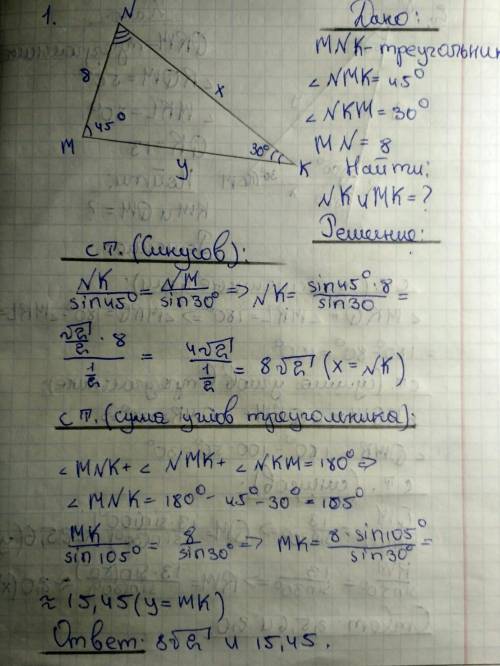 1.
N
8
x
45°
M
y
30°
K
Дано:
MNK - треугольник
∠NMK = 45°
∠NKM = 30°
MN = 8
Найти:
NK и MK = ?
Решение:
с т. (Синусов):
NK/sin45° = NM/sin30° => NK = sin45°·8/sin30 =
√2/2 · 8 / 1/2 = 4√2 / 1/2 = 8√2 (x = NK)
с т. (сума углов треуголника):
∠MNK + ∠NMK + ∠NKM = 180° =>
∠MNK = 180° - 45° - 30° = 105°
MK/sin105° = 8/sin30° => MK = 8·sin105°/sin30° =
≈ 15,45 (y = MK)
Ответ: 8√2 и 15,45.